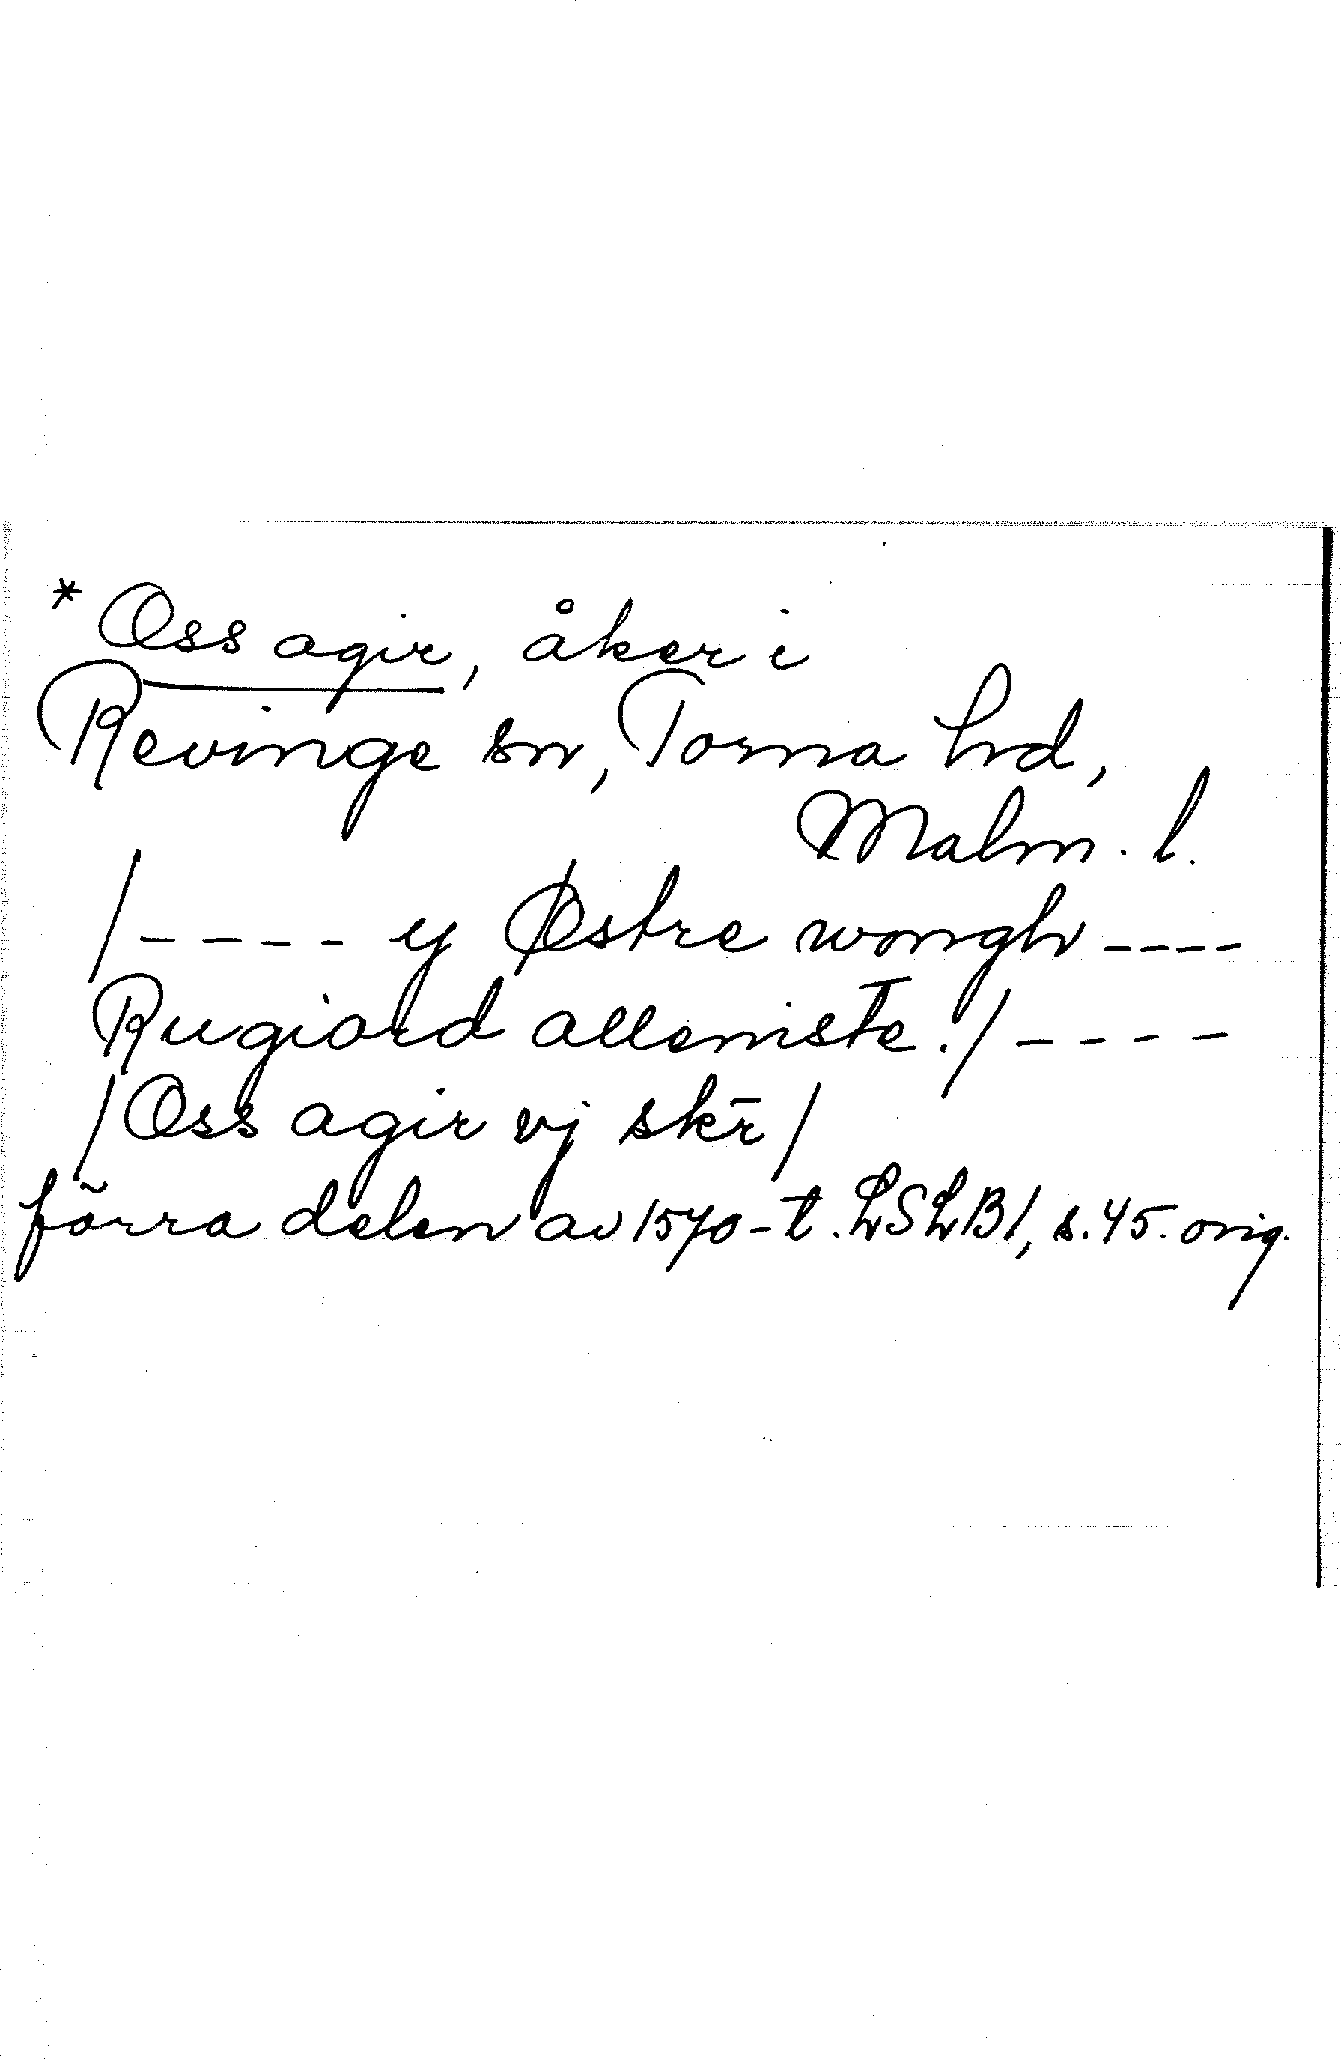 * Oss agir, åker i
Revinge sn, Torna hd,
Malm. l.
/---- y Østre wongh ----
Rugiord allemste./----
/Oss agir vj skr̄/
förra delen av 1570-t. LSLB1, s. 45. orig.